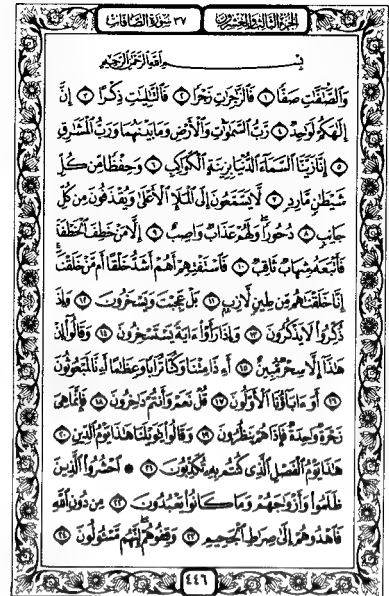 الجزء الثالث والعشرون ٣٧ سورة الصافات
بسم الله الرحمن الرحيم
وَالصَّٰٓفَّٰتِ صَفًّا ١ فَالزَّٰجِرَٰتِ زَجْرًا ٢ فَالتَّٰلِيَٰتِ ذِكْرًا ٣ إِنَّ
إِلَٰهَكُمْ لَوَٰحِدٌ ٤ رَّبُّ السَّمَٰوَٰتِ وَالْأَرْضِ وَمَا بَيْنَهُمَا وَرَبُّ الْمَشَٰرِقِ
٥ إِنَّا زَيَّنَّا السَّمَآءَ الدُّنْيَا بِزِينَةٍ الْكَوَاكِبِ ٦ وَحِفْظًا مِّن كُلِّ
شَيْطَٰنٍ مَّارِدٍ ٧ لَّا يَسَّمَّعُونَ إِلَى الْمَلَإِ الْأَعْلَىٰ وَيُقْذَفُونَ مِن كُلِّ
جَانِبٍ ٨ دُحُورًا وَلَهُمْ عَذَابٌ وَاصِبٌ ٩ إِلَّا مَنْ خَطِفَ الْخَطْفَةَ
فَأَتْبَعَهُۥ شِهَابٌ ثَاقِبٌ ١٠ فَاسْتَفْتِهِمْ أَهُمْ أَشَدُّ خَلْقًا أَم مَّنْ خَلَقْنَآ
إِنَّا خَلَقْنَٰهُم مِّن طِينٍ لَّازِبٍ ١١ بَلْ عَجِبْتَ وَيَسْخَرُونَ ١٢ وَإِذَا
ذُكِّرُوا لَا يَذْكُرُونَ ١٣ وَإِذَا رَأَوْا ءَايَةً يَسْتَسْخِرُونَ ١٤ وَقَالُوٓا إِنْ
هَٰذَآ إِلَّا سِحْرٌ مُّبِينٌ ١٥ أَءِذَا مِتْنَا وَكُنَّا تُرَابًا وَعِظَٰمًا أَءِنَّا لَمَبْعُوثُونَ
١٦ أَوَءَابَآؤُنَا الْأَوَّلُونَ ١٧ قُلْ نَعَمْ وَأَنتُمْ دَٰخِرُونَ ١٨ فَإِنَّمَا هِيَ
زَجْرَةٌ وَٰحِدَةٌ فَإِذَا هُمْ يَنظُرُونَ ١٩ وَقَالُوا يَٰوَيْلَنَا هَٰذَا يَوْمُ الدِّينِ ٢٠
هَٰذَا يَوْمُ الْفَصْلِ الَّذِي كُنتُم بِهِۦ تُكَذِّبُونَ ٢١ ۞ احْشُرُوا الَّذِينَ
ظَلَمُوا وَأَزْوَٰجَهُمْ وَمَا كَانُوا يَعْبُدُونَ ٢٢ مِن دُونِ اللَّهِ
فَاهْدُوهُمْ إِلَىٰ صِرَٰطِ الْجَحِيمِ ٢٣ وَقِفُوهُمْ إِنَّهُم مَّسْـُٔولُونَ ٢٤
٤٤٦